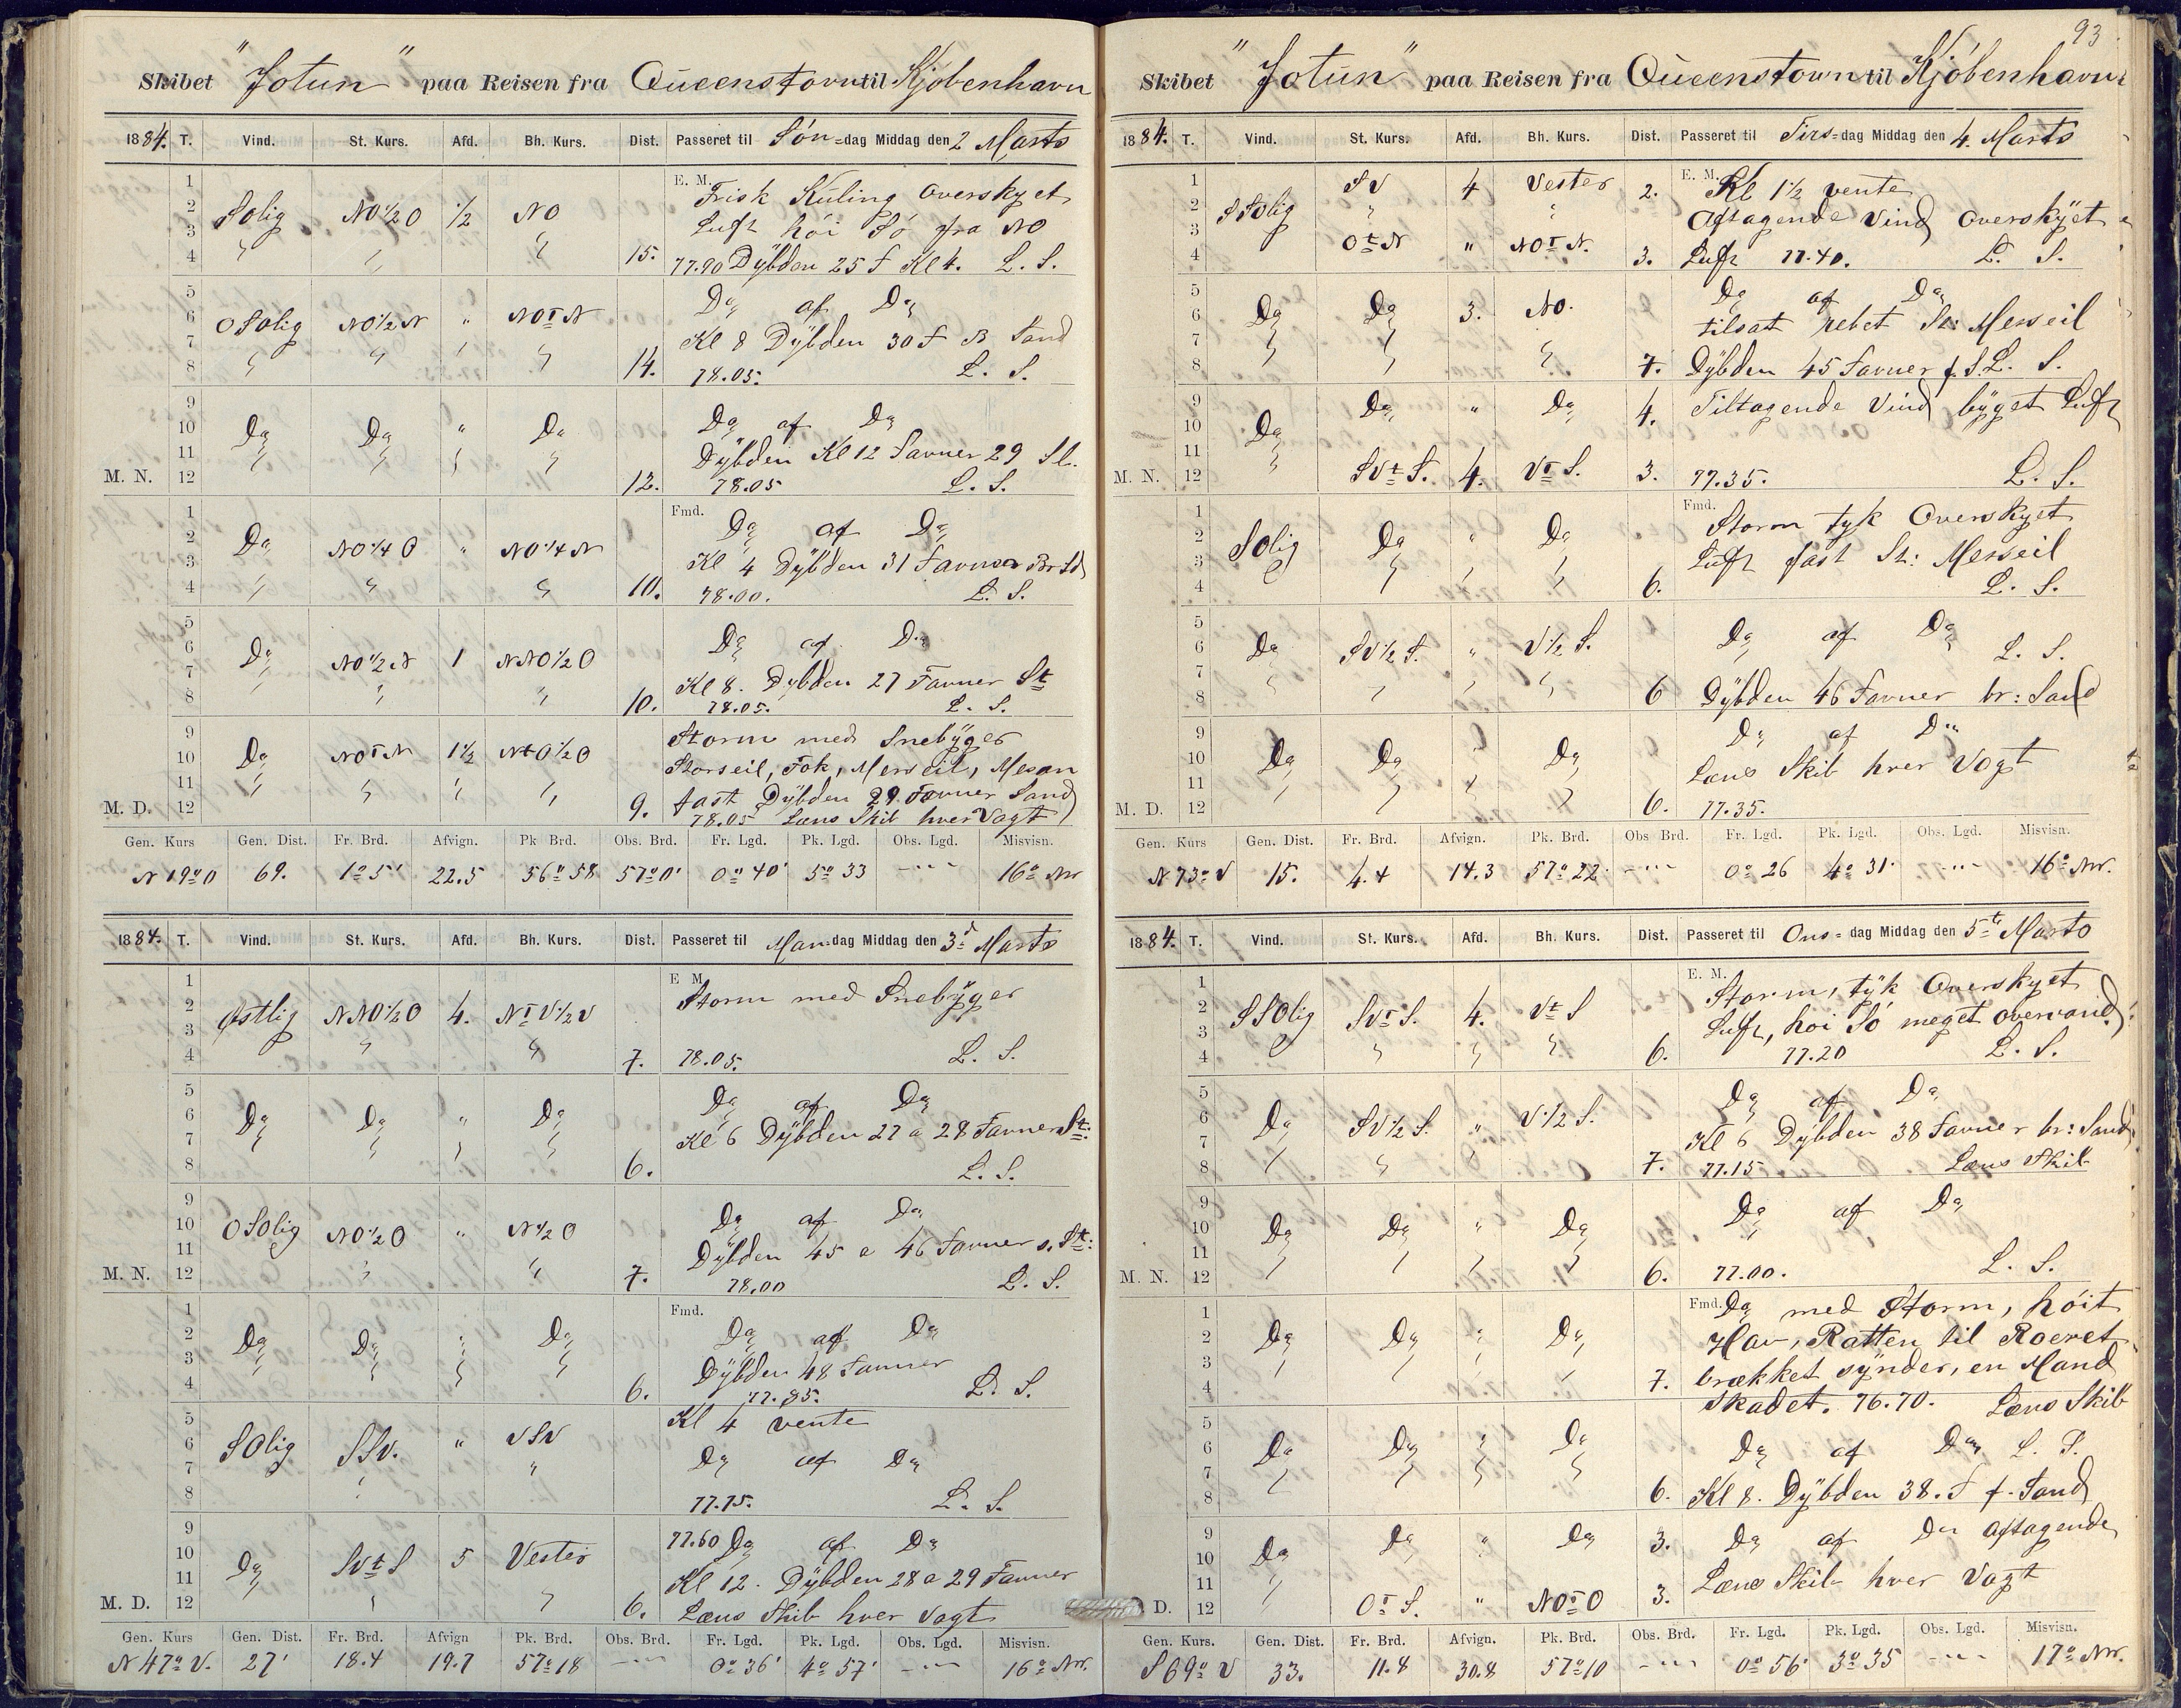 Skibet "Jotun" paa Reisen fra Queenstown til Kjöbenhavn
1884. T. Vind. St. Kurs. Afd. Bh. Kurs. Dist. Passeret til Søn=dag Middag den 2 Marts
1 E. M. Frisk Kuling Overskyet
2 SOlig NO1/2O 1/2 NO
3 Luft höi Sö fra NO
4 " " " 15. 77.90 Dÿbden 25 F Kl 4. L. S.
5 Do af Do
6 OSOlig NO1/2N " NOtN
7 Kl 8 Dÿbden 30 F B Sand
8 " " " " 14. 78.05. L. S.
9 Do af Do
10 Do Do " Do
11 Dÿbden Kl 12 Favner 29 Sl.
M. N. 12 12. 78.05 L. S.
1 Fmd. Do af Do
2 Do NO1/4O " NO1/4N
3 Kl 4 Dÿbden 31 Favner Br Sd
4 " " " 10. 78.00. L. S.
5 Do af Do
6 Do NO1/2N 1 NNO1/2O
7 Kl 8. Dybden 27 Favner St
8 " " 10. 78.05. L. S.
9 Storm med Snebÿger
10 Do NOtN 1 1/2 NtO1/2O Storseil, Fok, Merseil, Mesan
11 " " " " fast Dÿbden 29 Favner Sand
M. D. 12 9. 78.05 Læns Skib hver Vagt
Gen. Kurs Gen. Dist. Fr. Brd. Afvign. Pk Brd. Obs. Brd. Fr. Lgd. Pk. Lgd. Obs. Lgd. Misvisn.
N 19° O 69. 1° 5' 22.5 56° 58 57° 0' 0° 40' 5° 33 --- 16° NW
1884. T. Vind. St. Kurs. Afd. Bh. Kurs. Dist. Passeret til Man=dag Middag den 3d Marts
1 E M. Storm med Snebÿger
2 Østlig NNO1/2O 4. NtV1/2V
3
4 " " 7. 78.05. L. S.
5 Do af Do
6 Do Do " Do
7 Kl 6 Dÿbden 27 a 28 Favner St:
8 6. L. S.
9 Do af Do
10 OSOlig NO1/2O " N1/2O
11 Dÿbden 45 a 46 Favner s. St:
M. N. 12 " " 7. 78.00 L. S.
1 Fmd. Do af Do
2 Do Do " Do
3 Dÿbden 48 Favner
4 6. 77.85. L. S.
5 Kl 4 vente
6 SOlig SSV. " VSV
7 " Do af Do
8 77.75. L. S.
9 77.60 Do af Do
10 Do SVtS 5 Vester
11 Kl 12. Dÿbden 28 a 29 Favner
M. D. 12 6. Læns Skib hver Vagt
Gen. Kurs Gen. Dist. Fr. Brd. Afvign Pk. Brd. Obs. Brd. Fr. Lgd. Pk. Lgd. Obs. Lgd. Misvisn.
N 47° V. 27' 18.4 19.7 57° 18 --- 0° 36' 4° 57' --- 16° NW.
93
Skibet "Jotun" paa Reisen fra Queenstown til Kjöbenhavn
1884. T. Vind. St. Kurs. Afd. Bh. Kurs. Dist. Passeret til Tirs=dag Middag den 4. Marts
1 SV 4 Vester 2. E. M. Kl 1 1/2 vente
2 SSOlig " " Aftagende Vind Overskÿet
3 OtN " NOtN.
4 3. Luft 77.40. L. S.
5 Do af Do
6 Do Do 3. NO. tilsat rebet St: Merseil
7
8 7. Dÿbden 45 Favner f. S. L. S.
9 Do " Do 4. Tiltagende Vind bÿget Luft
10 Do
11
M. N. 12 SVtS. 4. VtS. 3. 77.35. L. S.
1 Fmd. Storm tyk Overskyet
2 SOlig Do " Do
3 Luft fast St: Merseil
4 6. L. S.
5 Do af Do
6 Do SV1/2S. " V1/2S. L. S.
7
8 6 Dÿbden 46 Favner br: Sand
9 Do af Do
10 Do Do Do
11 Læns Skib hver Vagt
M. D. 12 6. 77.35.
Gen. Kurs Gen. Dist. Fr. Brd. Afvign. Pk. Brd. Obs Brd. Fr. Lgd. Pk. Lgd. Obs. Lgd. Misvisn.
N 73° V 15. 4.4 14.3 57° 22' --- 0° 26 4° 31' --- 16° NW.
1884. T. Vind. St. Kurs. Afd. Bh. Kurs. Dist. Passeret til Ons=dag Middag den 5te Marts
1 E. M. Storm, tÿk Overskyet
2 SSOlig SVtS. 4. VtS
3 Luft, höi Sö meget overvand
4 " " " 6. 77.20 L. S.
5 Do af Do
6 Do SV1/2S. " V1/2S.
7 Kl 6 Dÿbden 38 Favner br: Sand
8 7. 77.15 Læns Skib
9 Do af Do
10 Do Do " Do
11
M. N. 12 6. 77.00. L. S.
1 Fmd. Do med Storm, höit
2 Do Do " Do Hav, Ratten til Roeret
3 7. brækket sÿnder, en Mand
4 skadet. 76.70. Læns Skib
5
6 Do Do " Do Do af Do L. S.
7
8 6. Kl 8. Dÿbden 38. F f. Sand
9 Do " Do 3. Do af Do aftagende
10 Do
11 Læns Skib hver Vagt
D. 12 OtS. " NOtO 3.
Gen. Kurs. Gen. Dist. Fr. Brd. Afvign. Pk. Brd. Obs. Brd. Fr. Lgd. Pk. Lgd. Obs. Lgd. Misvisn.
S 69° V 33. 11.8 30.8 57° 10 --- 0° 56' 3° 35 --- 17° NW.